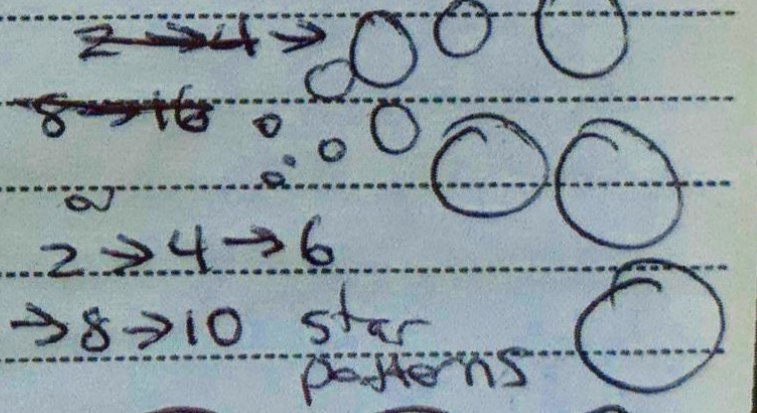 2 → 4 →
8 → 16
or
2 → 4 → 6
→ 8 → 10 star
patterns